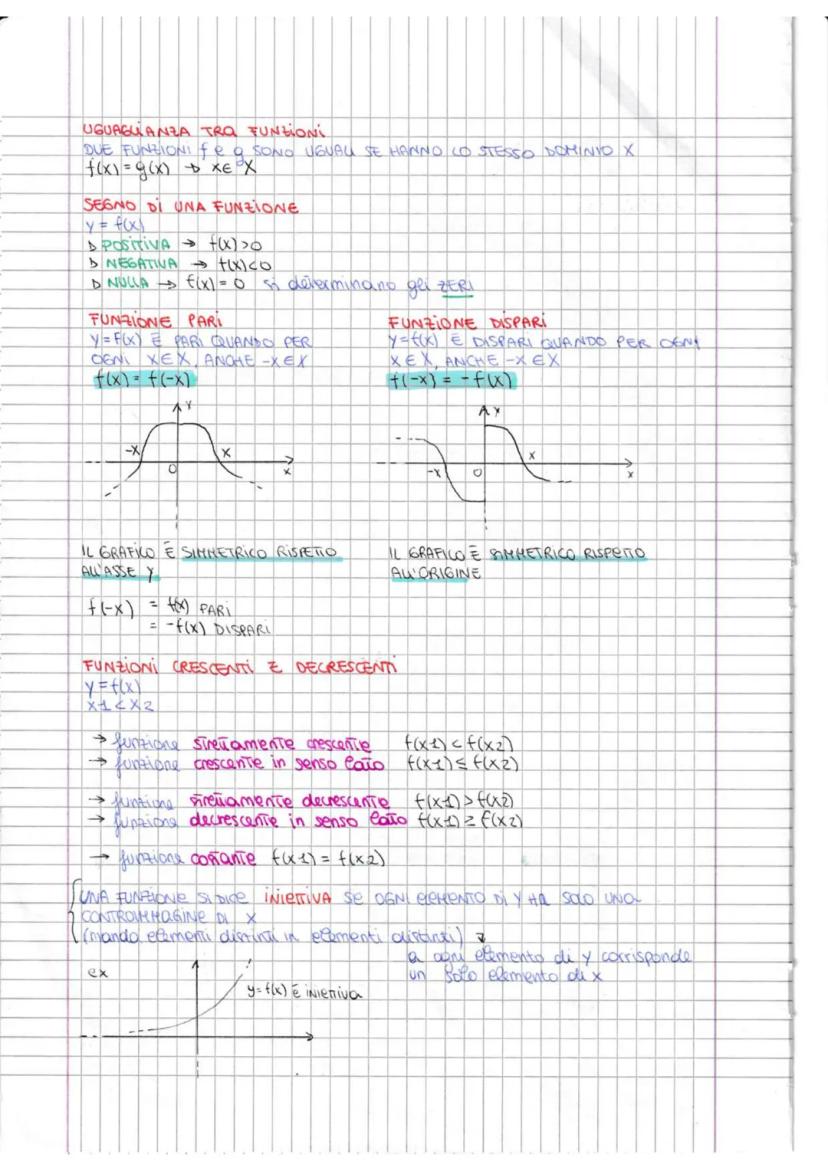 UGUAGLIANZA TRA FUNZIONI
DUE FUNZIONI f e g SONO UGUALI SE HANNO LO STESSO DOMINIO X
f(x) = g(x) → x∈X
SEGNO DI UNA FUNZIONE
y = f(x)
▷ POSITIVA → f(x)>0
▷ NEGATIVA → f(x)<0
▷ NULLA → f(x) = 0 si determinano gli ZERI
FUNZIONE PARI
Y=F(X) È PARI QUANDO PER
OGNI X∈X, ANCHE -X∈X
f(x) = f(-x)
Y
-X
X
O
X
IL GRAFICO È SIMMETRICO RISPETTO
ALL'ASSE Y
FUNZIONE DISPARI
Y=f(x) È DISPARI QUANDO PER OGNI
X∈X, ANCHE -X∈X
f(-x) = -f(x)
Y
-X
O
X
X
IL GRAFICO È SIMMETRICO RISPETTO
ALL'ORIGINE
f(-x) = f(x) PARI
= -f(x) DISPARI
FUNZIONI CRESCENTI E DECRESCENTI
y = f(x)
x1 < x2
→ funzione strettamente crescente f(x1) < f(x2)
→ funzione crescente in senso lato f(x1) ≤ f(x2)
→ funzione strettamente decrescente f(x1) > f(x2)
→ funzione decrescente in senso lato f(x1) ≥ f(x2)
→ funzione costante f(x1) = f(x2)
UNA FUNZIONE SI DICE INIETTIVA SE OGNI ELEMENTO DI Y HA SOLO UNA
CONTROIMMAGINE DI X
(manda elementi distinti in elementi distinti) ↴
a ogni elemento di y corrisponde
un solo elemento di x
ex
y=f(x) è iniettiva